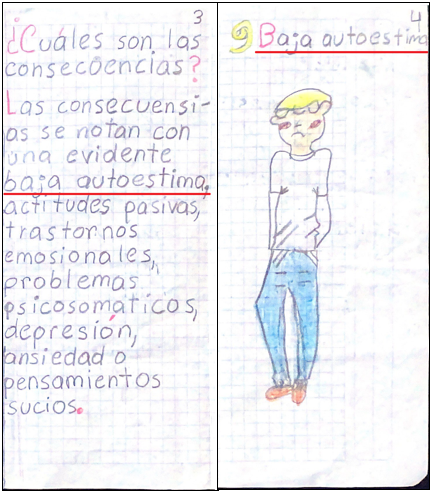 3
¿Cuáles son las
consecuencias?
Las consecuensi-
as se notan con
una evidente
baja autoestima,
actitudes pasivas,
trastornos
emosionales,
problemas
psicosomáticos,
depresión,
ansiedad o
pensamientos
sucios.
4
9 Baja autoestima